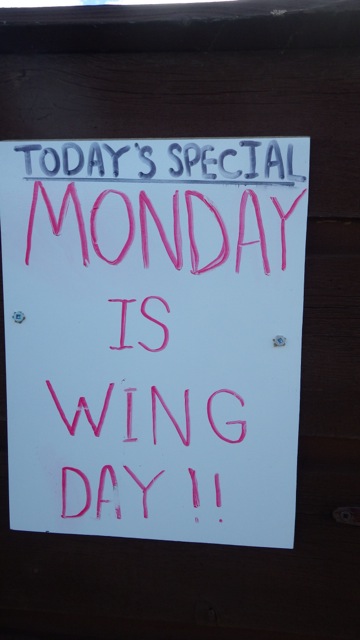 TODAY'S SPECIAL
MONDAY
IS
WING
DAY !!